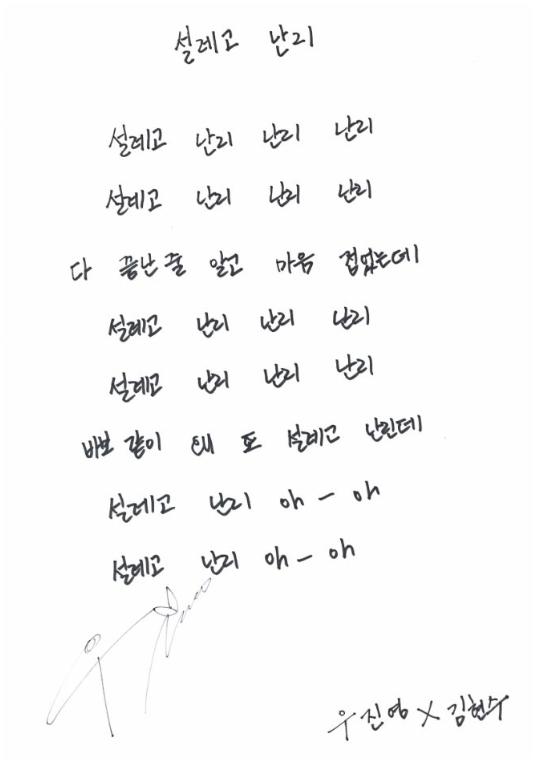 설레고 난리
설레고 난리 난리 난리
설레고 난리 난리 난리
다 끝난 줄 알고 마음 접었는데
설레고 난리 난리 난리
설레고 난리 난리 난리
바보 같이 왜 또 설레고 난린데
설레고 난리 oh - oh
설레고 난리 oh - oh
우진영 X 김현수